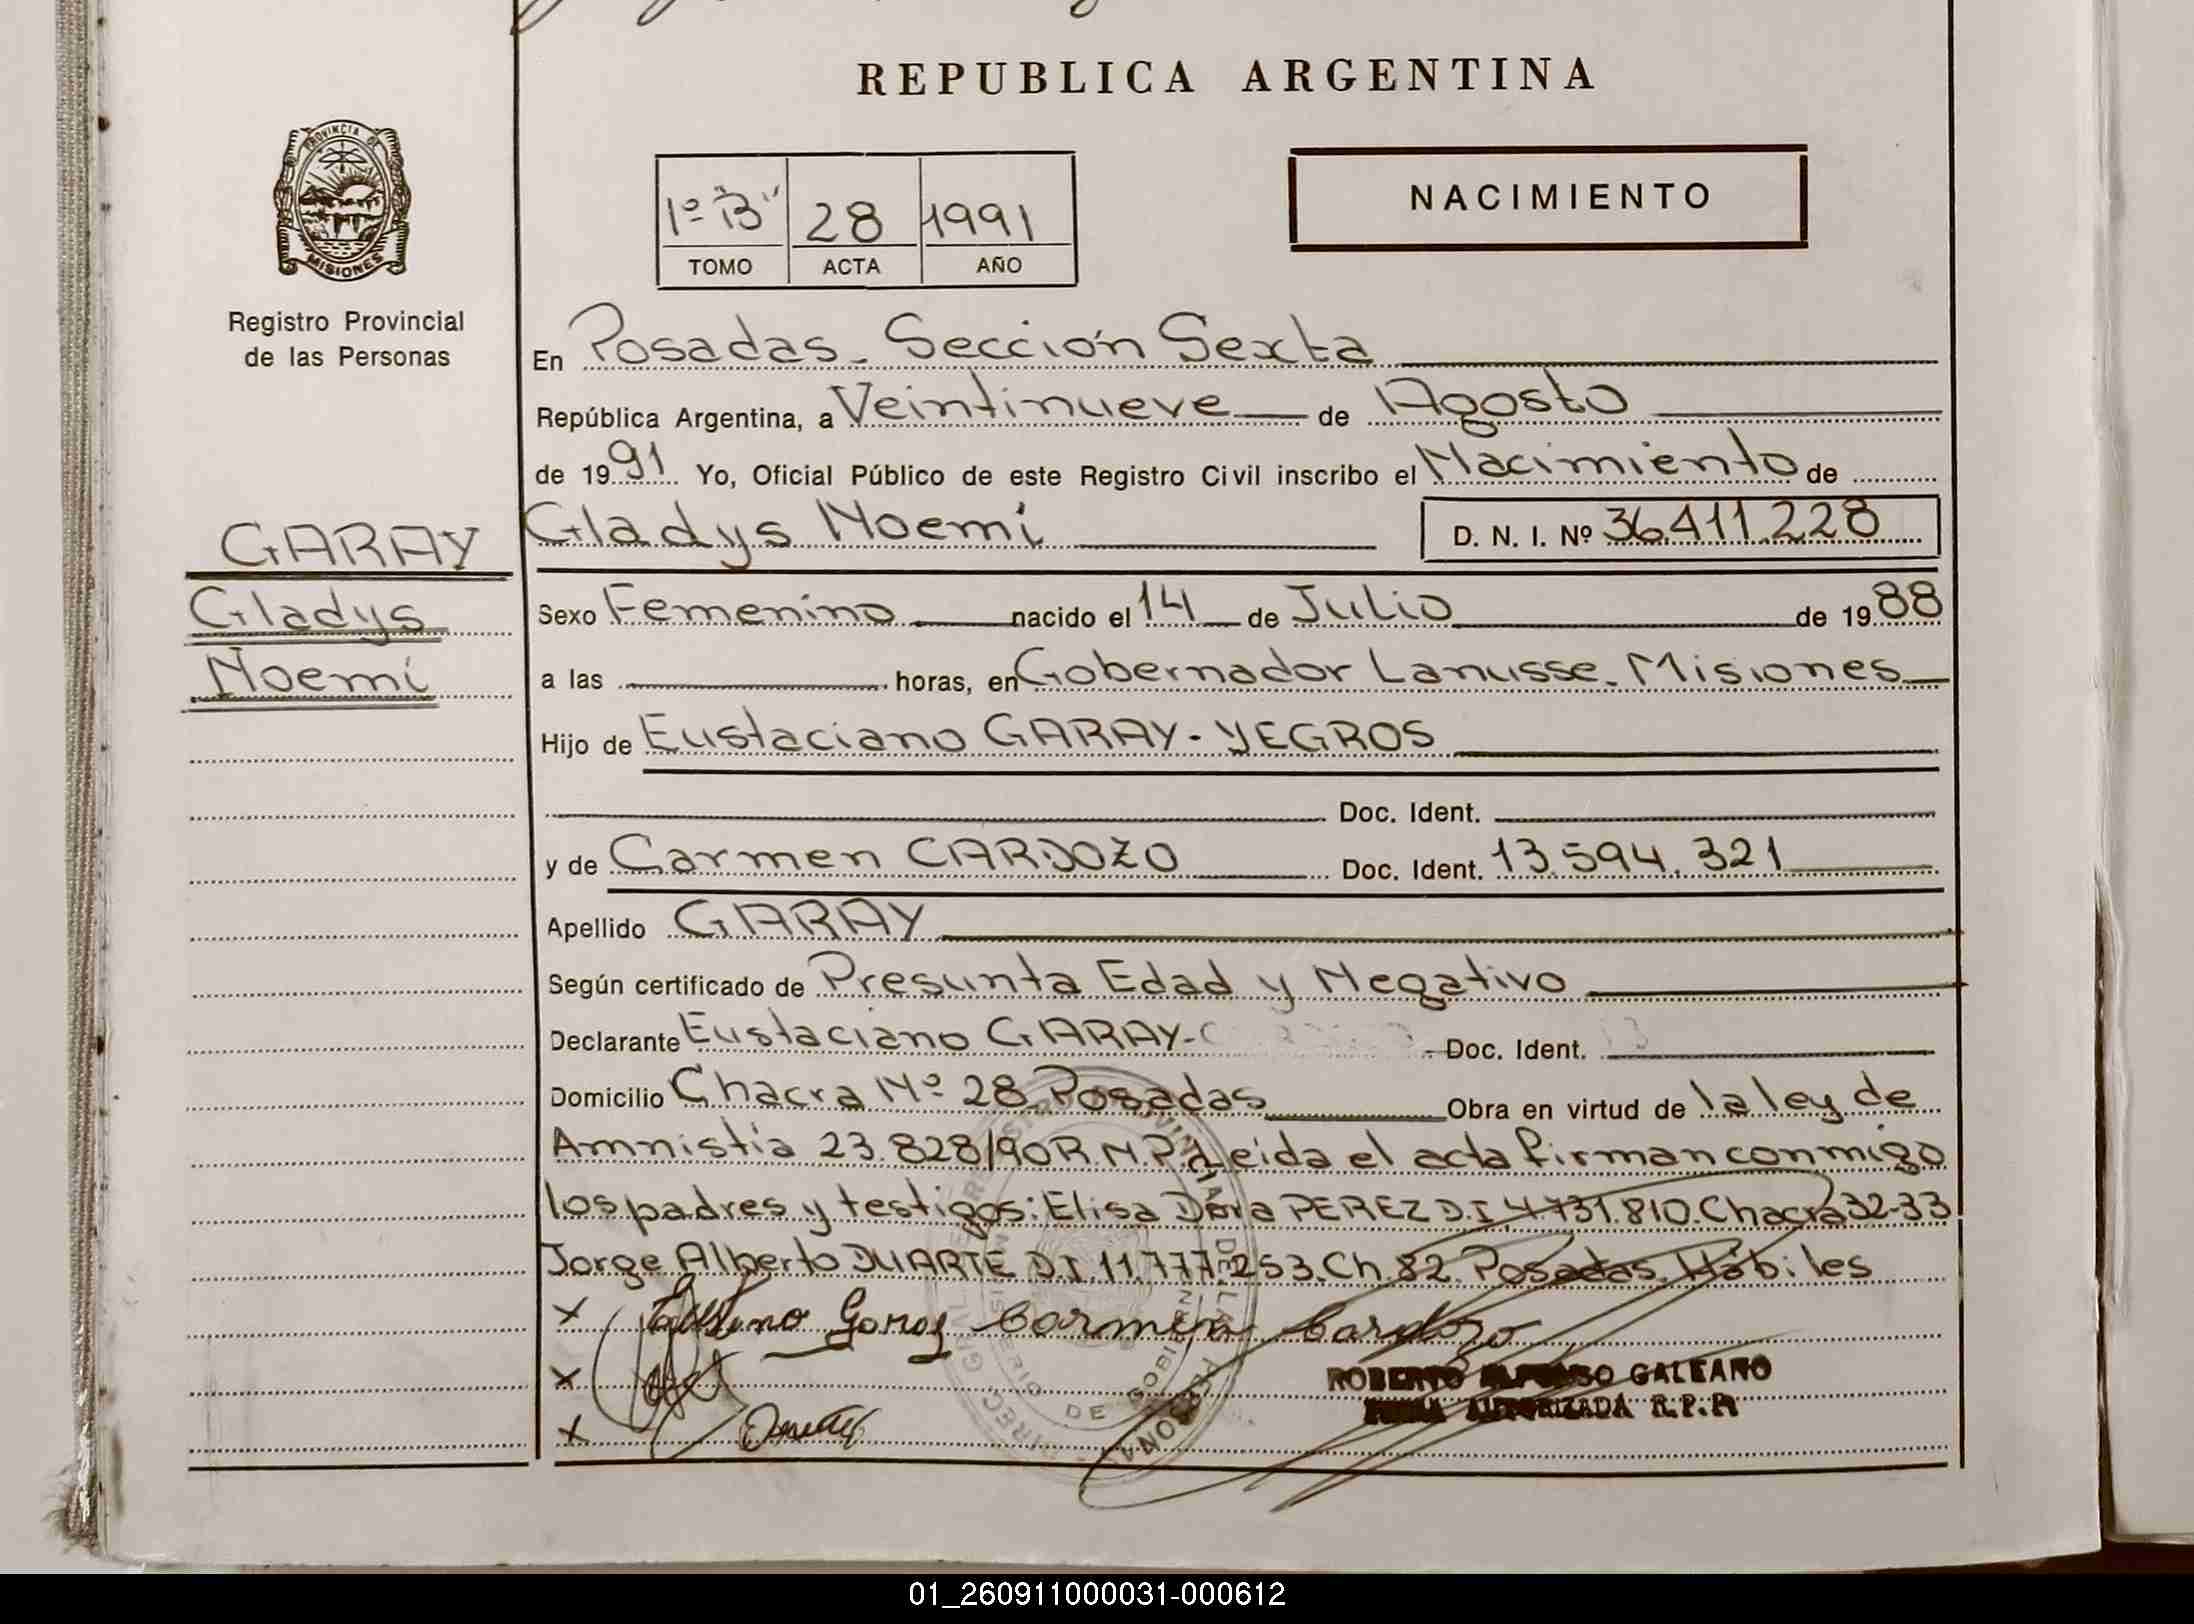 REPUBLICA ARGENTINA
PROVINCIA DE
MISIONES
Registro Provincial
de las Personas
1º "B" 28 1991
TOMO ACTA AÑO
NACIMIENTO
En Posadas - Sección Sexta
República Argentina, a Veintinueve de Agosto
de 1991 Yo, Oficial Público de este Registro Civil inscribo el Nacimiento de
Gladys Noemí D. N. I. Nº 36.411.228
GARAY
Gladys
Noemí
Sexo Femenino nacido el 14 de Julio de 1988
a las horas, en Gobernador Lanusse - Misiones
Hijo de Eustaciano GARAY - YEGROS
Doc. Ident.
y de Carmen CARDOZO Doc. Ident. 13.594.321
Apellido GARAY
Según certificado de Presunta Edad y Negativo
Declarante Eustaciano GARAY - Doc. Ident.
Domicilio Chacra Nº 28 Posadas Obra en virtud de la ley de
Amnistía 23.828/90 R.N.P. Leída el acta firman conmigo
los padres y testigos: Elisa Dora PEREZ D.I 4.731.810. Chacra 32-33
Jorge Alberto DUARTE D.I. 11.777.253. Ch. 82. Posadas. Hábiles
x Garay Carmen Cardozo
x
x
ROBERTO ALFONSO GALEANO
FIRMA AUTORIZADA R.P.P.
01_260911000031-000612